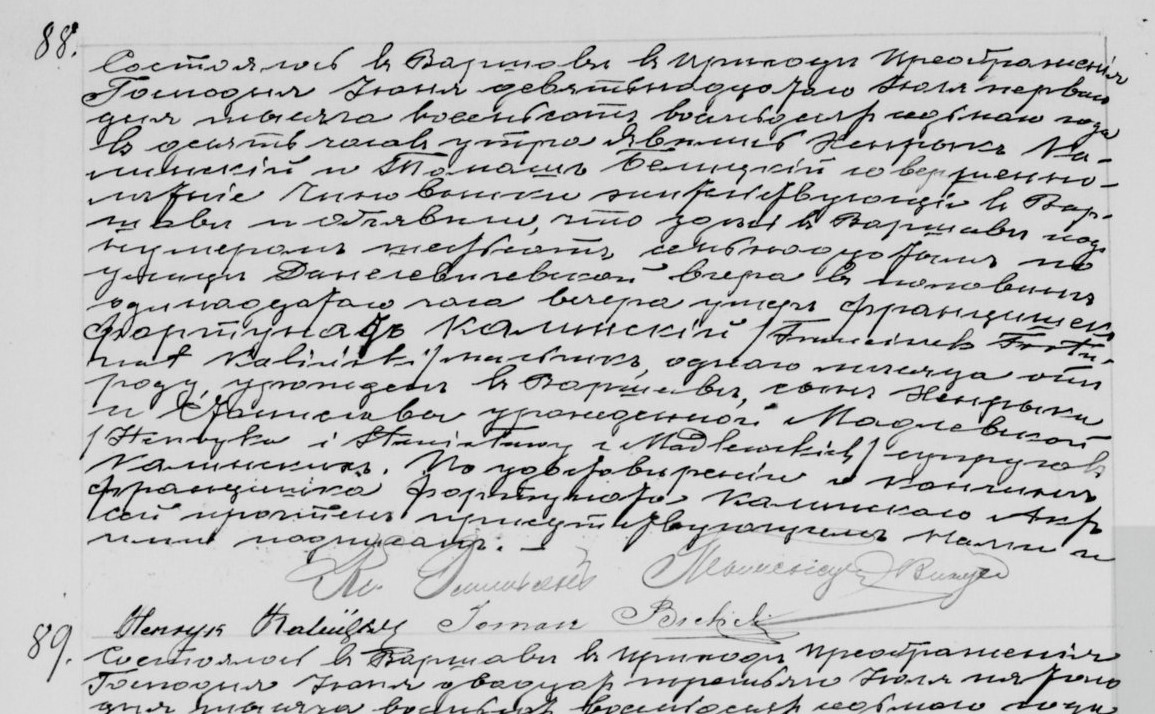 88.
Состоялось въ Варшавѣ въ приходѣ Преображенія
Господня Іюня девятнадцатаго Іюля перваго
дня тысяча восемьсотъ восемьдесятъ седьмаго года
въ десять часовъ утра. Явились Хенрыкъ Ка-
линскій и Томашъ Белицкій совершенно-
лѣтніе чиновники жительствующіе въ Вар-
шавѣ и объявили, что здѣсь въ Варшавѣ подъ
нумеромъ шестьсотъ семнадцатымъ по
улицѣ Данелевичевской вчера въ половинѣ
одинадцатаго часа вечера умеръ Францишекъ
Фортунатъ Калинскій /Franciszek Fortu-
nat Kaliński/ мальчикъ, одного мѣсяца отъ
роду, урожденъ въ Варшавѣ, сынъ Хенрыка
и Станиславы урожденной Мадлевской
/Henryka i Stanisławy z Madlewskich/ супруговъ
Калинскихъ. По удостовѣреніи о кончинѣ
Францишка Фортуната Калинскаго Актъ
сей прочтенъ присутствующимъ Нами и
ими подписанъ. —
Henryk Kaliński Tomasz Bielicki
89.
Состоялось въ Варшавѣ въ приходѣ Преображенія
Господня Іюня двадцать третьяго Іюля пятаго
дня тысяча восемьсотъ восемьдесятъ седьмаго года